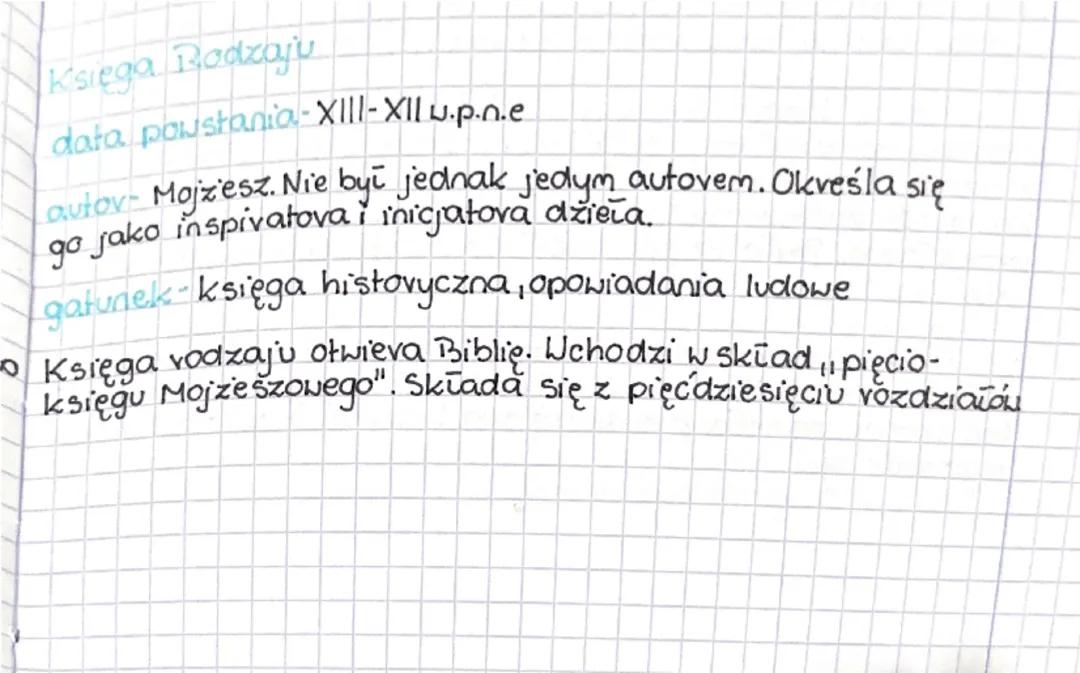 Księga Rodzaju
data powstania - XIII - XII w.p.n.e
autor - Mojżesz. Nie był jednak jedym autorem. Określa się
go jako inspiratora i inicjatora dzieła.
gatunek - księga historyczna, opowiadania ludowe
Księga rodzaju otwiera Biblię. Wchodzi w skład „pięcio-
księgu Mojżeszowego". Składa się z pięćdziesięciu rozdziałów